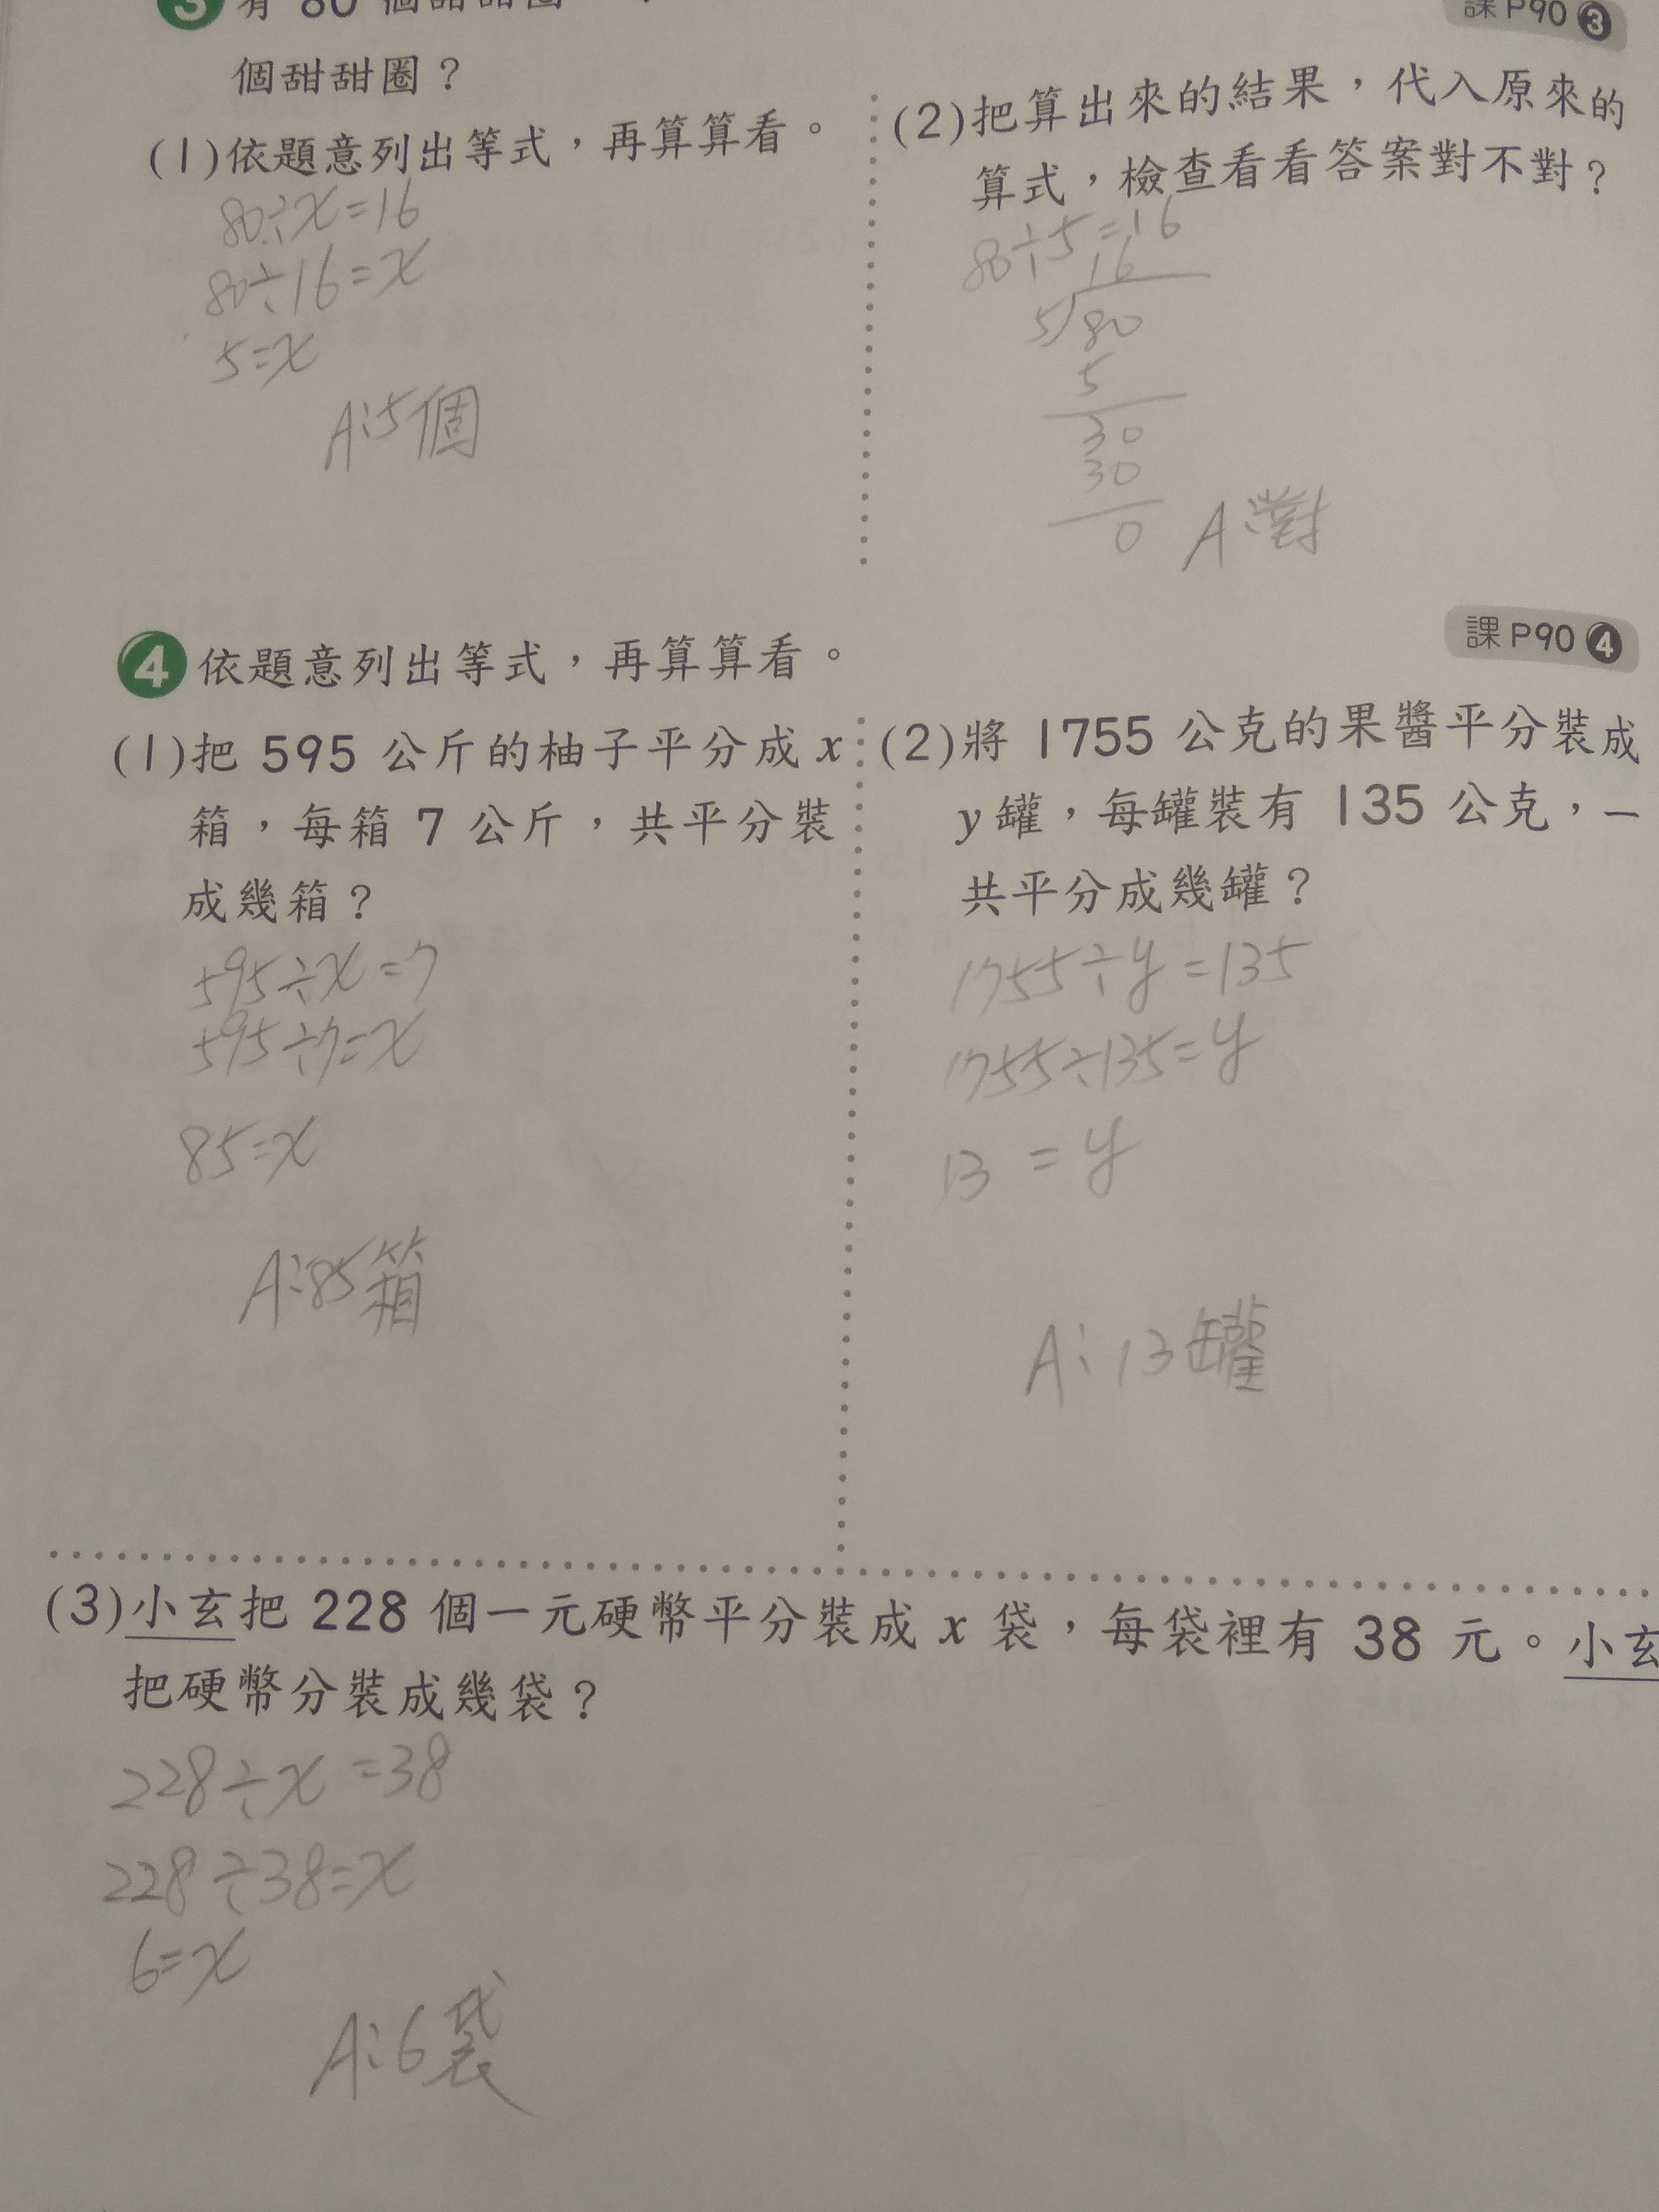 3 有 80 個甜甜圈
課P90 3
個甜甜圈？
(1)依題意列出等式，再算算看。
80÷x=16
80÷16=x
5=x
A:5個
(2)把算出來的結果，代入原來的
算式，檢查看看答案對不對？
80÷5=16
16
5)80
5
30
30
0
A:對
4 依題意列出等式，再算算看。
課P90 4
(1)把 595 公斤的柚子平分成 x
箱，每箱 7 公斤，共平分裝
成幾箱？
595÷x=7
595÷7=x
85=x
A:85箱
(2)將 1755 公克的果醬平分裝成
y罐，每罐裝有 135 公克，一
共平分成幾罐？
1755÷y=135
1755÷135=y
13=y
A:13罐
(3)小玄把 228 個一元硬幣平分裝成 x 袋，每袋裡有 38 元。小玄
把硬幣分裝成幾袋？
228÷x=38
228÷38=x
6=x
A:6袋